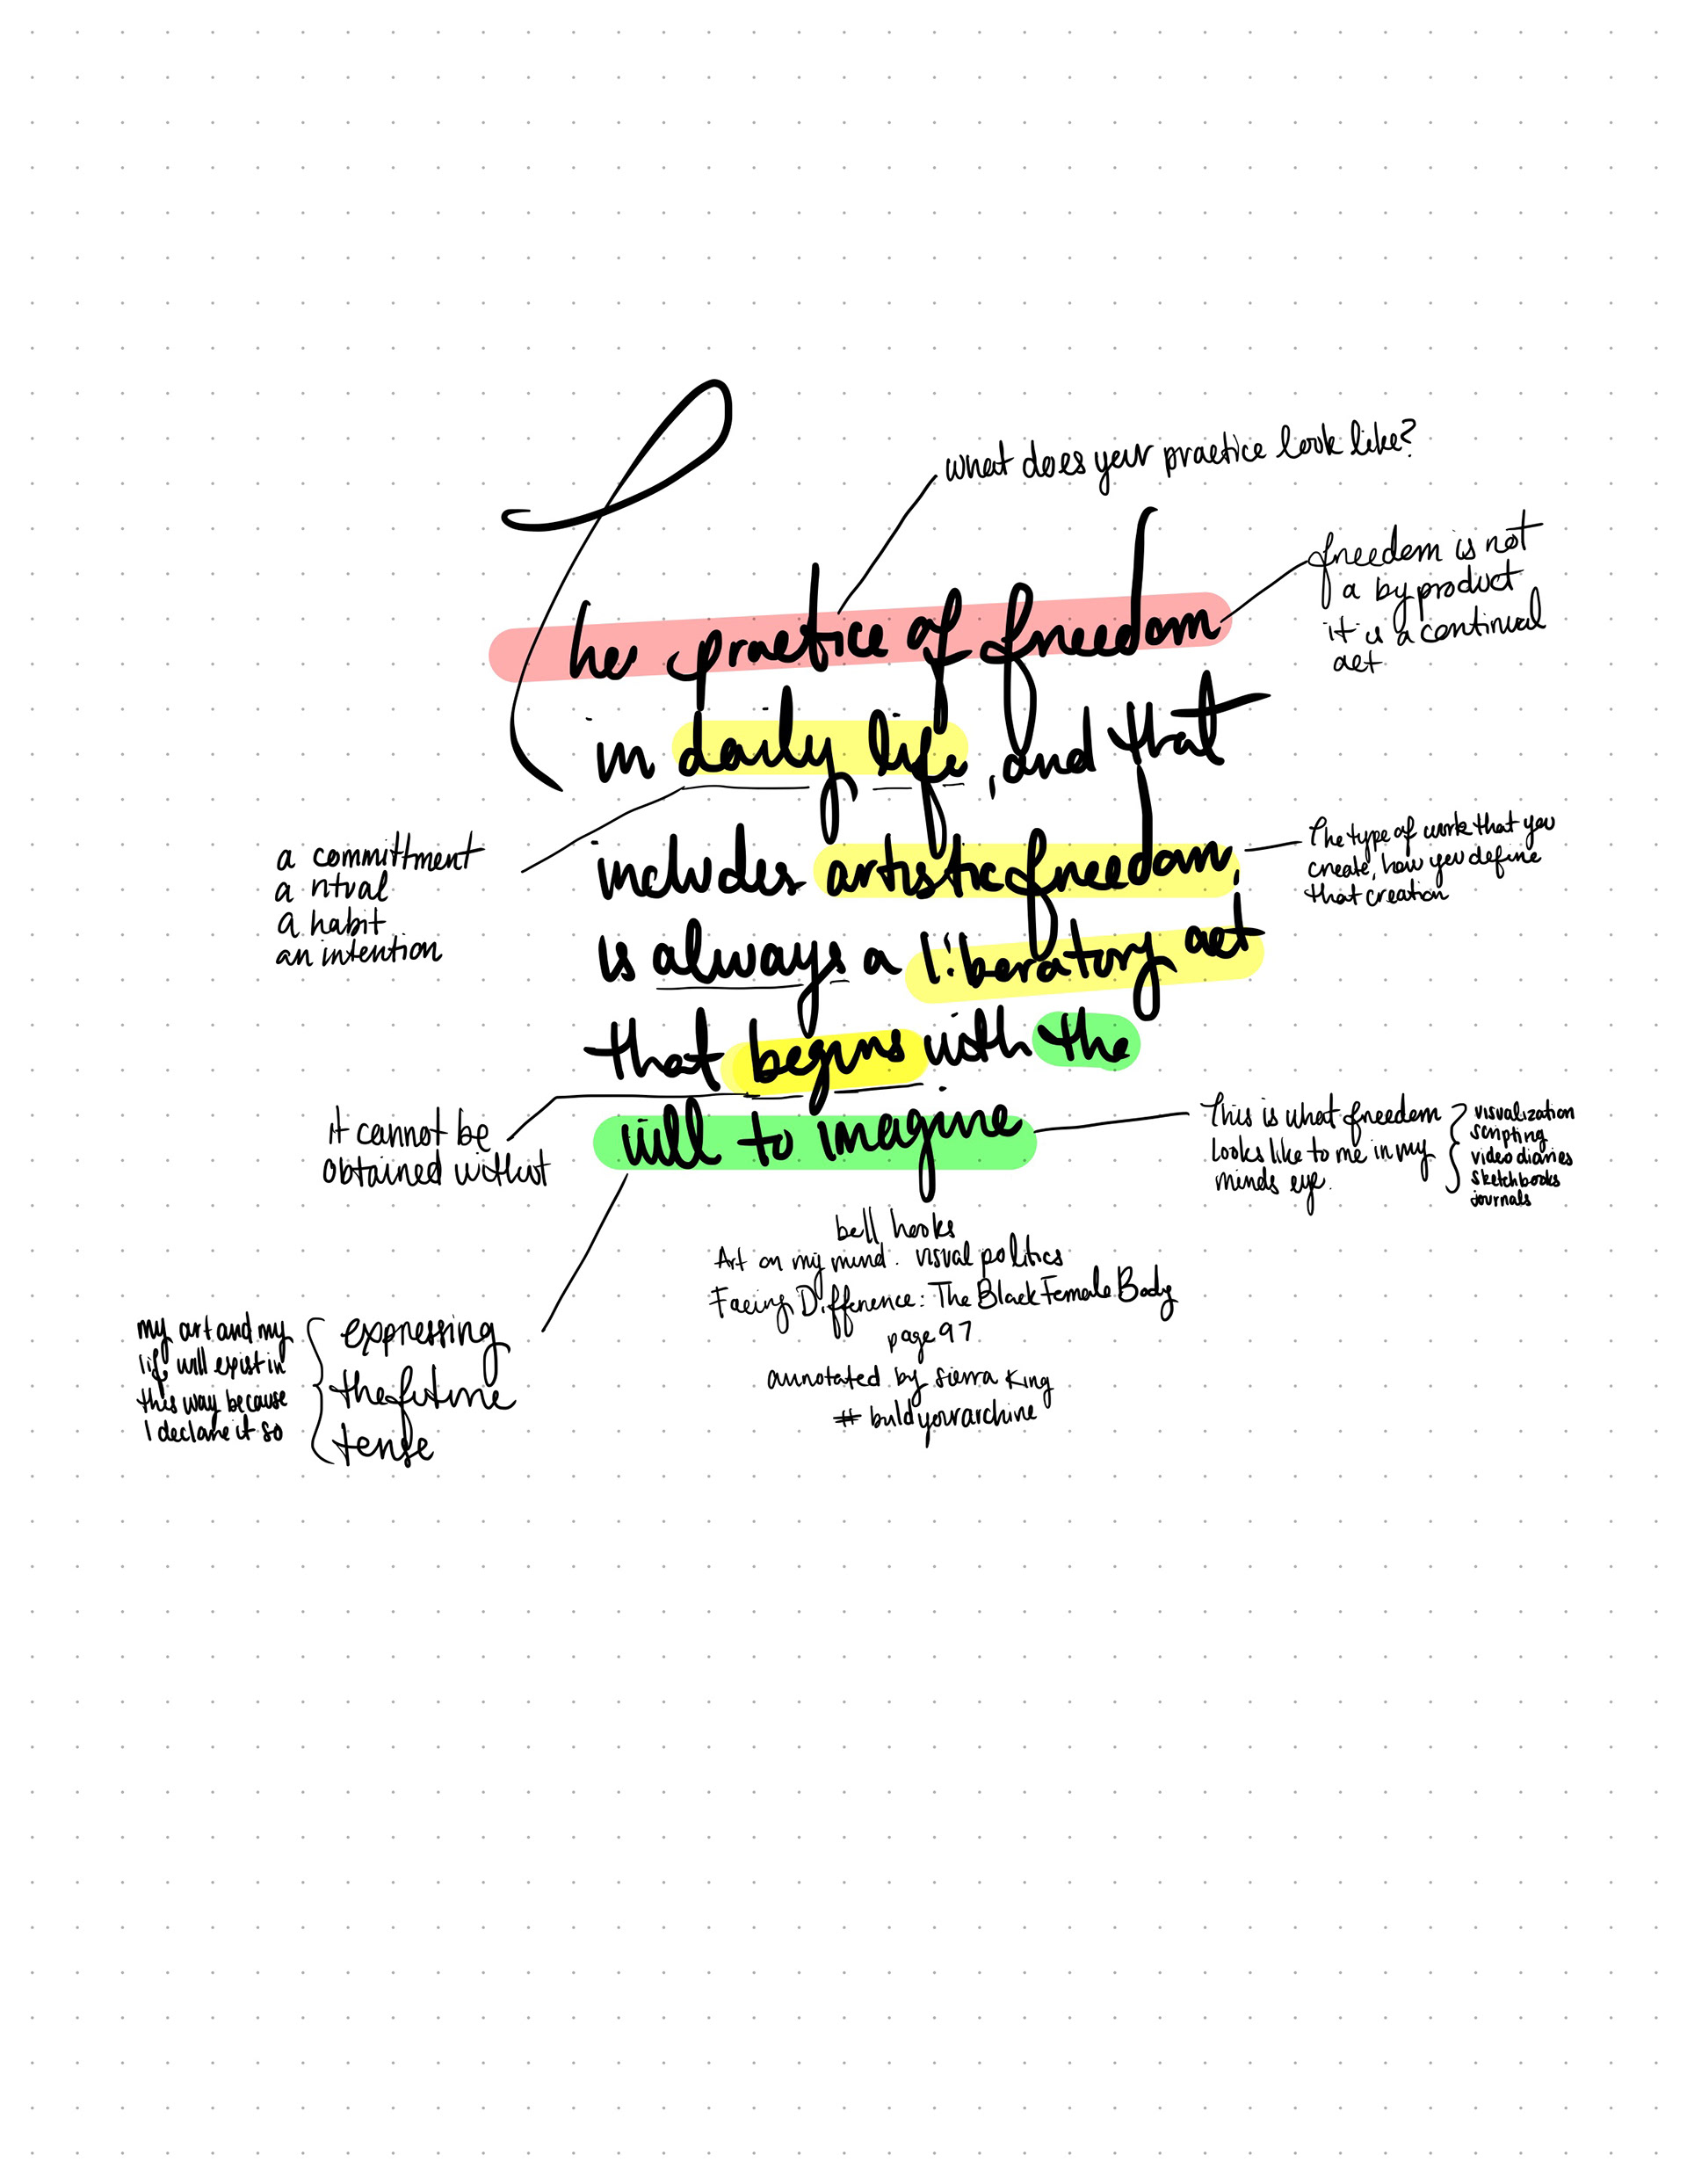 what does your practice look like?
freedom is not
a by product
it is a continual
act
The practice of freedom
in daily life, and that
includes artistic freedom,
is always a liberatory act
that begins with the
will to imagine
a committment
a ritual
a habit
an intention
The type of work that you
create, how you define
that creation
it cannot be
obtained without
This is what freedom
looks like to me in my
minds eye.
visualization
scripting
video diaries
sketchbooks
journals
my art and my
life will exist in
this way because
I declare it so
expressing
the future
tense
bell hooks
Art on my mind. visual politics
Facing Difference: The Black Female Body
page 97
annotated by sierra king
# buildyourarchive